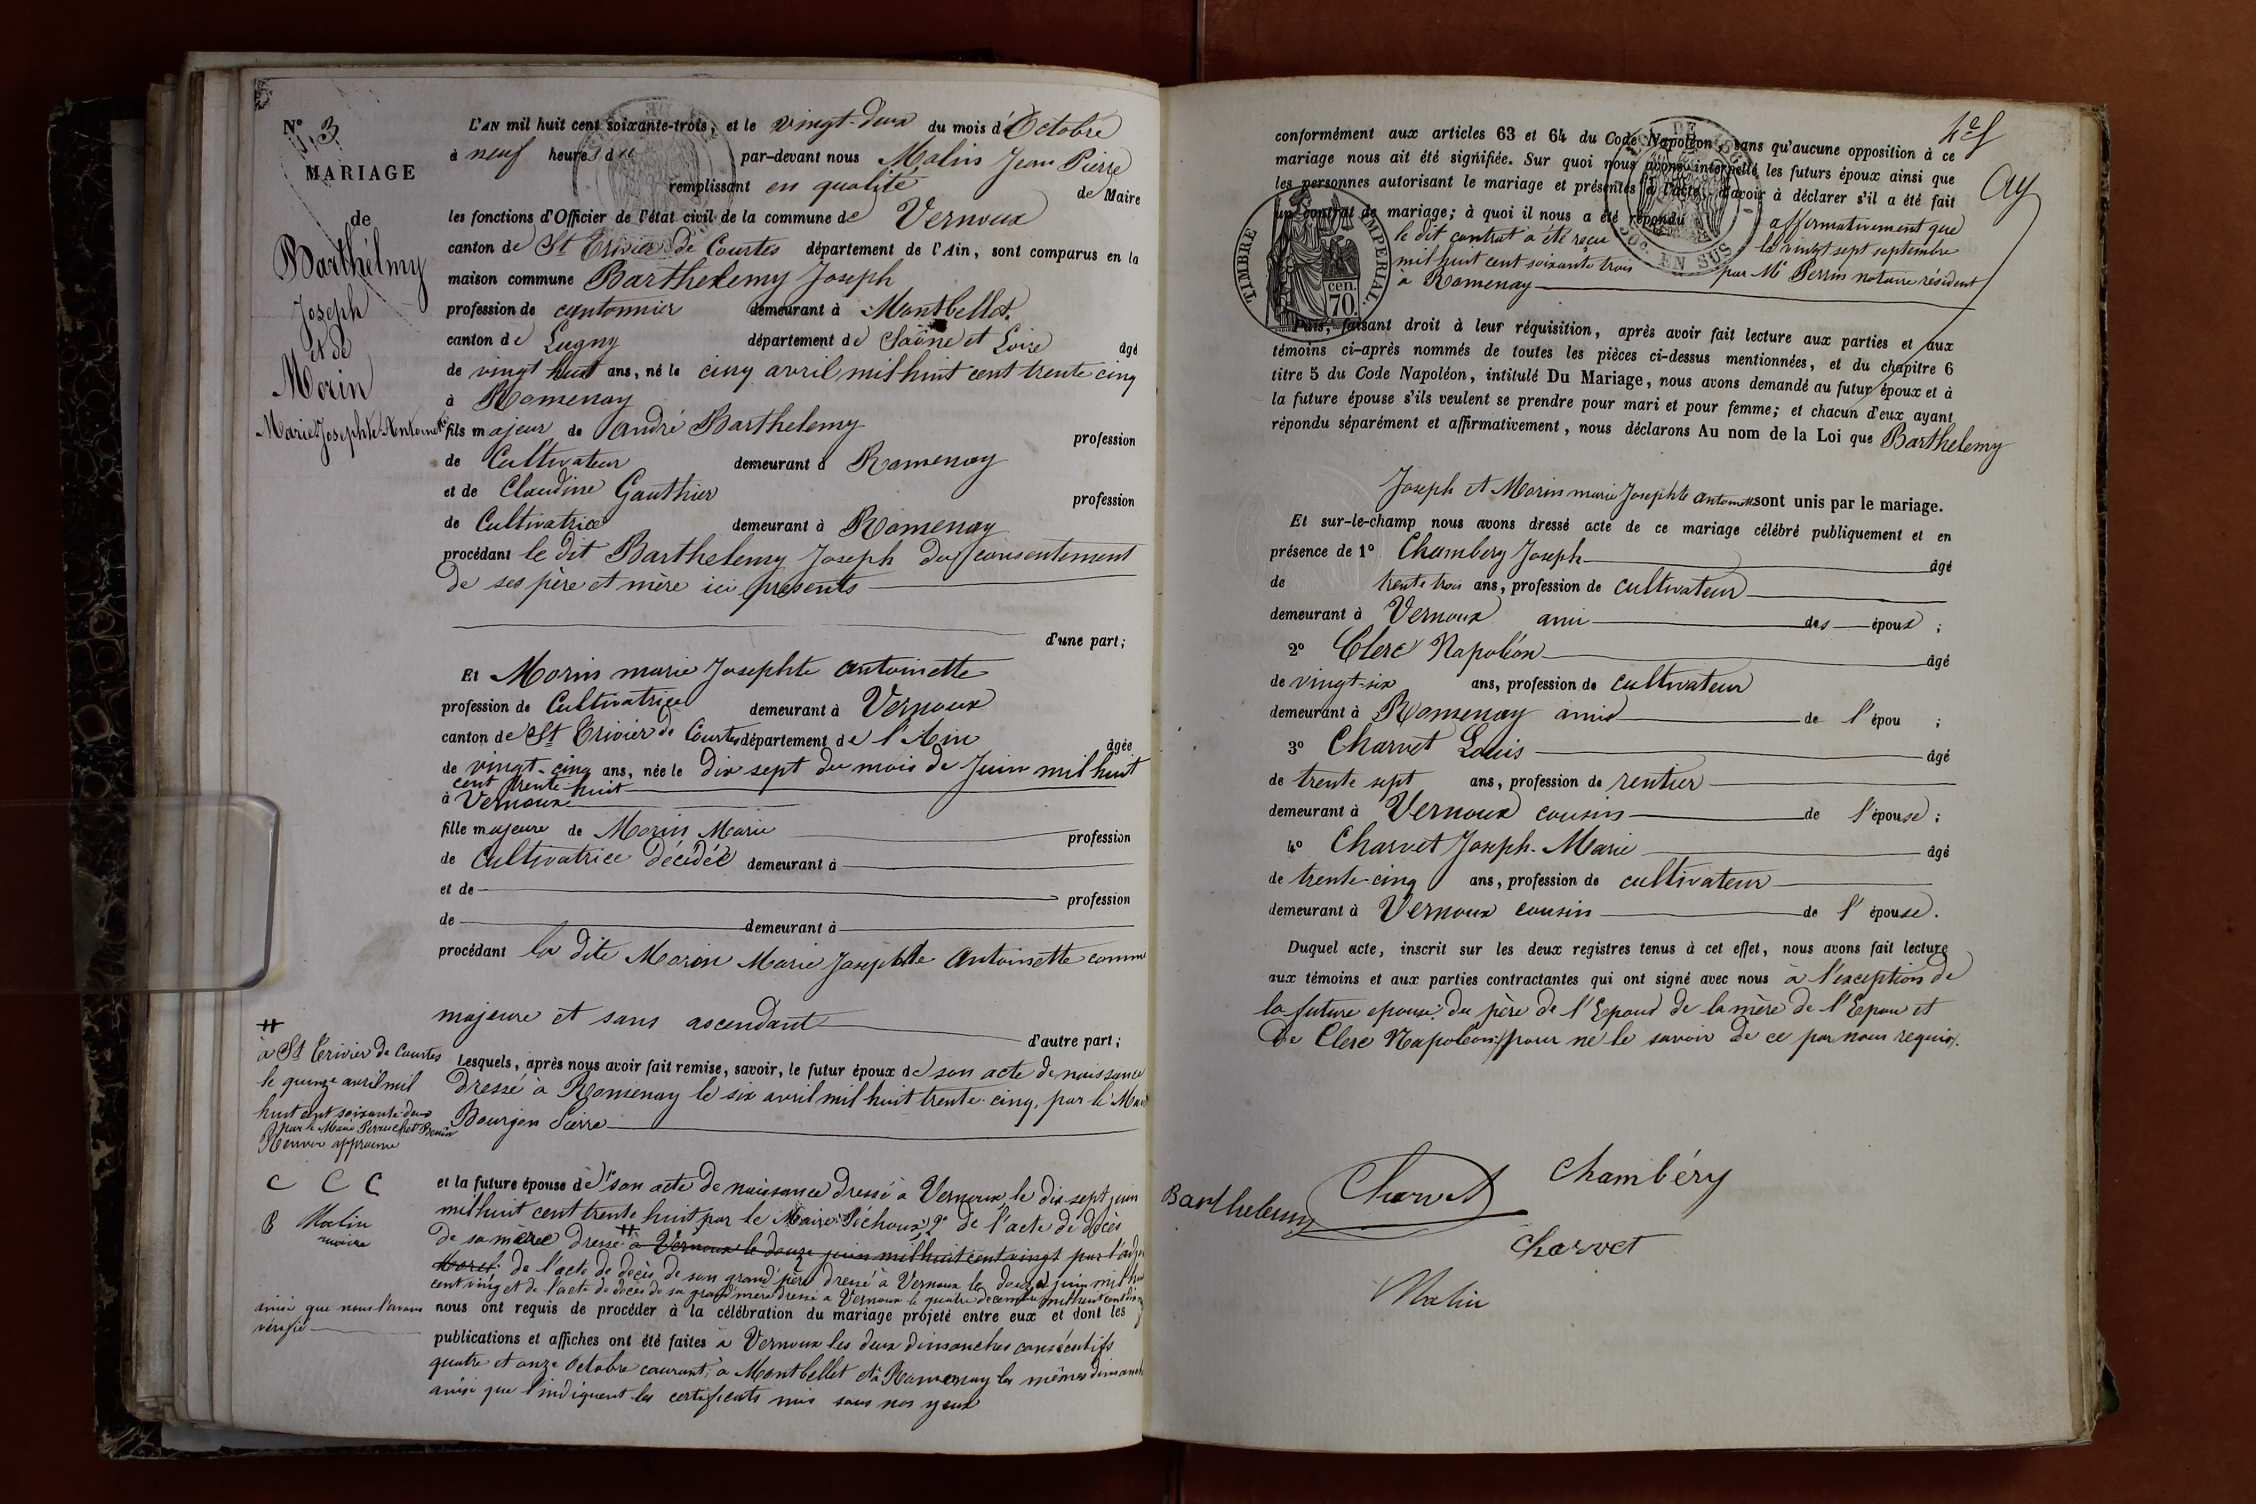 N° 13
MARIAGE
de
Barthélmy
Joseph
et de
Morin
Marie Josephte Antoinette
L'AN mil huit cent soixante-trois, et le vingt-deux du mois d'Octobre
à neuf heures du par-devant nous Malin Jean Pierre
remplissant en qualité de Maire
les fonctions d'Officier de l'état civil de la commune de Vernoux
canton de St Trivier de Courtes département de l'Ain, sont comparus en la
maison commune Barthelemy Joseph
profession de cantonnier demeurant à Montbellet
canton de Lugny département de Saône et Loire âgé
de vingt huit ans, né le cinq avril mil huit cent trente cinq
à Romenay
fils majeur de André Barthelemy profession
de Cultivateur demeurant à Romenay
et de Claudine Gauthier profession
de Cultivatrice demeurant à Romenay
procédant le dit Barthelemy Joseph du consentement
de ses père et mère ici présents
d'une part;
Et Morin marie Josephte antoinette
profession de Cultivatrice demeurant à Vernoux
canton de St Trivier de Courtes département de l'Ain âgée
de vingt-cinq ans, née le dix sept du mois de Juin mil huit
cent trente huit
à Vernoux
fille majeure de Morin Marie profession
de Cultivatrice décédée demeurant à
et de profession
de demeurant à
procédant la dite Morin Marie Josephte Antoinette comme
majeure et sans ascendant
d'autre part;
Lesquels, après nous avoir fait remise, savoir, le futur époux de son acte de naissance
dressé à Romenay le six avril mil huit trente-cinq, par le Maire
Bourgon Pierre
et la future épouse de 1° son acte de naissance dressé à Vernoux le dix-sept juin
mil huit cent trente huit par le Maire Péchoux, 2° de l'acte de décès
de sa mère dressé # à Vernoux le douze juin mil huit cent vingt par l'adj
Morel. de l'acte de décès de son grand père dressé à Vernoux le douze juin mil huit
cent vingt et de l'acte de décès de sa grand'mère dressé à Vernoux le quatre decembre mil huit cent
nous ont requis de procéder à la célébration du mariage projeté entre eux et dont les
publications et affiches ont été faites à Vernoux les deux dimanches consécutifs
quatre et onze Octobre courant, à Montbellet et à Romenay les mêmes dimanches
ainsi que l'indiquent les certificats mis sous nos yeux
#
à St Trivier de Courtes
le quinze avril mil
huit cent soixante-deux
par le Maire Perruchet Benoit
Renvoi approuvé
C C C
B Malin
maire
ainsi que nous l'avons
vérifié
4e f
conformément aux articles 63 et 64 du Code Napoléon, sans qu'aucune opposition à ce
mariage nous ait été signifiée. Sur quoi nous avons interpellé les futurs époux ainsi que
les personnes autorisant le mariage et présentes à l'acte, d'avoir à déclarer s'il a été fait
un contrat de mariage; à quoi il nous a été répondu affirmativement que
le dit contrat a été reçu le vingt sept septembre
mil huit cent soixante trois par Me Perrin notaire résident
à Romenay
TIMBRE IMPERIAL.
cen. 70.
50c. EN SUS
Puis, faisant droit à leur réquisition, après avoir fait lecture aux parties et aux
témoins ci-après nommés de toutes les pièces ci-dessus mentionnées, et du chapitre 6
titre 5 du Code Napoléon, intitulé Du Mariage, nous avons demandé au futur époux et à
la future épouse s'ils veulent se prendre pour mari et pour femme; et chacun d'eux ayant
répondu séparément et affirmativement, nous déclarons Au nom de la Loi que Barthelemy
Joseph et Morin marie Josephte antoinette sont unis par le mariage.
Et sur-le-champ nous avons dressé acte de ce mariage célébré publiquement et en
présence de 1° Chambery Joseph âgé
de trente trois ans, profession de cultivateur
demeurant à Vernoux ami des époux ;
2° Clerc Napoléon âgé
de vingt-six ans, profession de cultivateur
demeurant à Romenay ami de l'épou ;
3° Charvet Louis âgé
de trente sept ans, profession de rentier
demeurant à Vernoux cousin de l'épouse ;
4° Charvet Joseph-Marie âgé
de trente-cinq ans, profession de cultivateur
demeurant à Vernoux cousin de l'épouse.
Duquel acte, inscrit sur les deux registres tenus à cet effet, nous avons fait lecture
aux témoins et aux parties contractantes qui ont signé avec nous à l'exception de
la future epouse du père de l'Epoux de la mère de l'Epoux et
de Clerc Napoleon pour ne le savoir de ce par nous requis.
Barthelemy Charvet Chambéry
Charvet
Malin